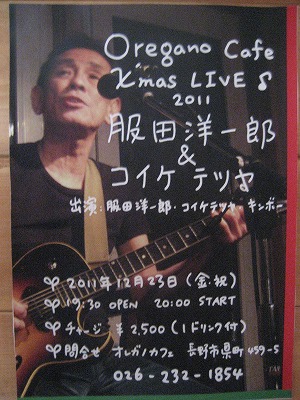 Oregano Cafe
X'mas LIVE ♪
2011
服田洋一郎
&
コイケ テツヤ
出演:服田洋一郎・コイケテツヤ・キンボー
2011年12月23日(金・祝)
19:30 OPEN 20:00 START
チャージ ¥2,500(1ドリンク付)
問合せ オレガノカフェ 長野市県町459-5
026-232-1854